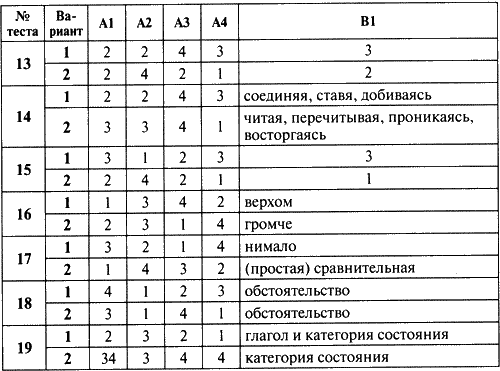 № теста Ва-риант А1 А2 А3 А4 В1
13 1 2 2 4 3 3
2 2 4 2 1 2
14 1 2 2 4 3 соединяя, ставя, добиваясь
2 3 3 4 1 читая, перечитывая, проникаясь,
восторгаясь
15 1 3 1 2 3 3
2 2 4 2 1 1
16 1 1 3 4 2 верхом
2 2 3 1 4 громче
17 1 3 2 1 4 нимало
2 1 4 3 2 (простая) сравнительная
18 1 4 1 2 3 обстоятельство
2 3 1 4 1 обстоятельство
19 1 2 3 2 1 глагол и категория состояния
2 34 3 4 4 категория состояния